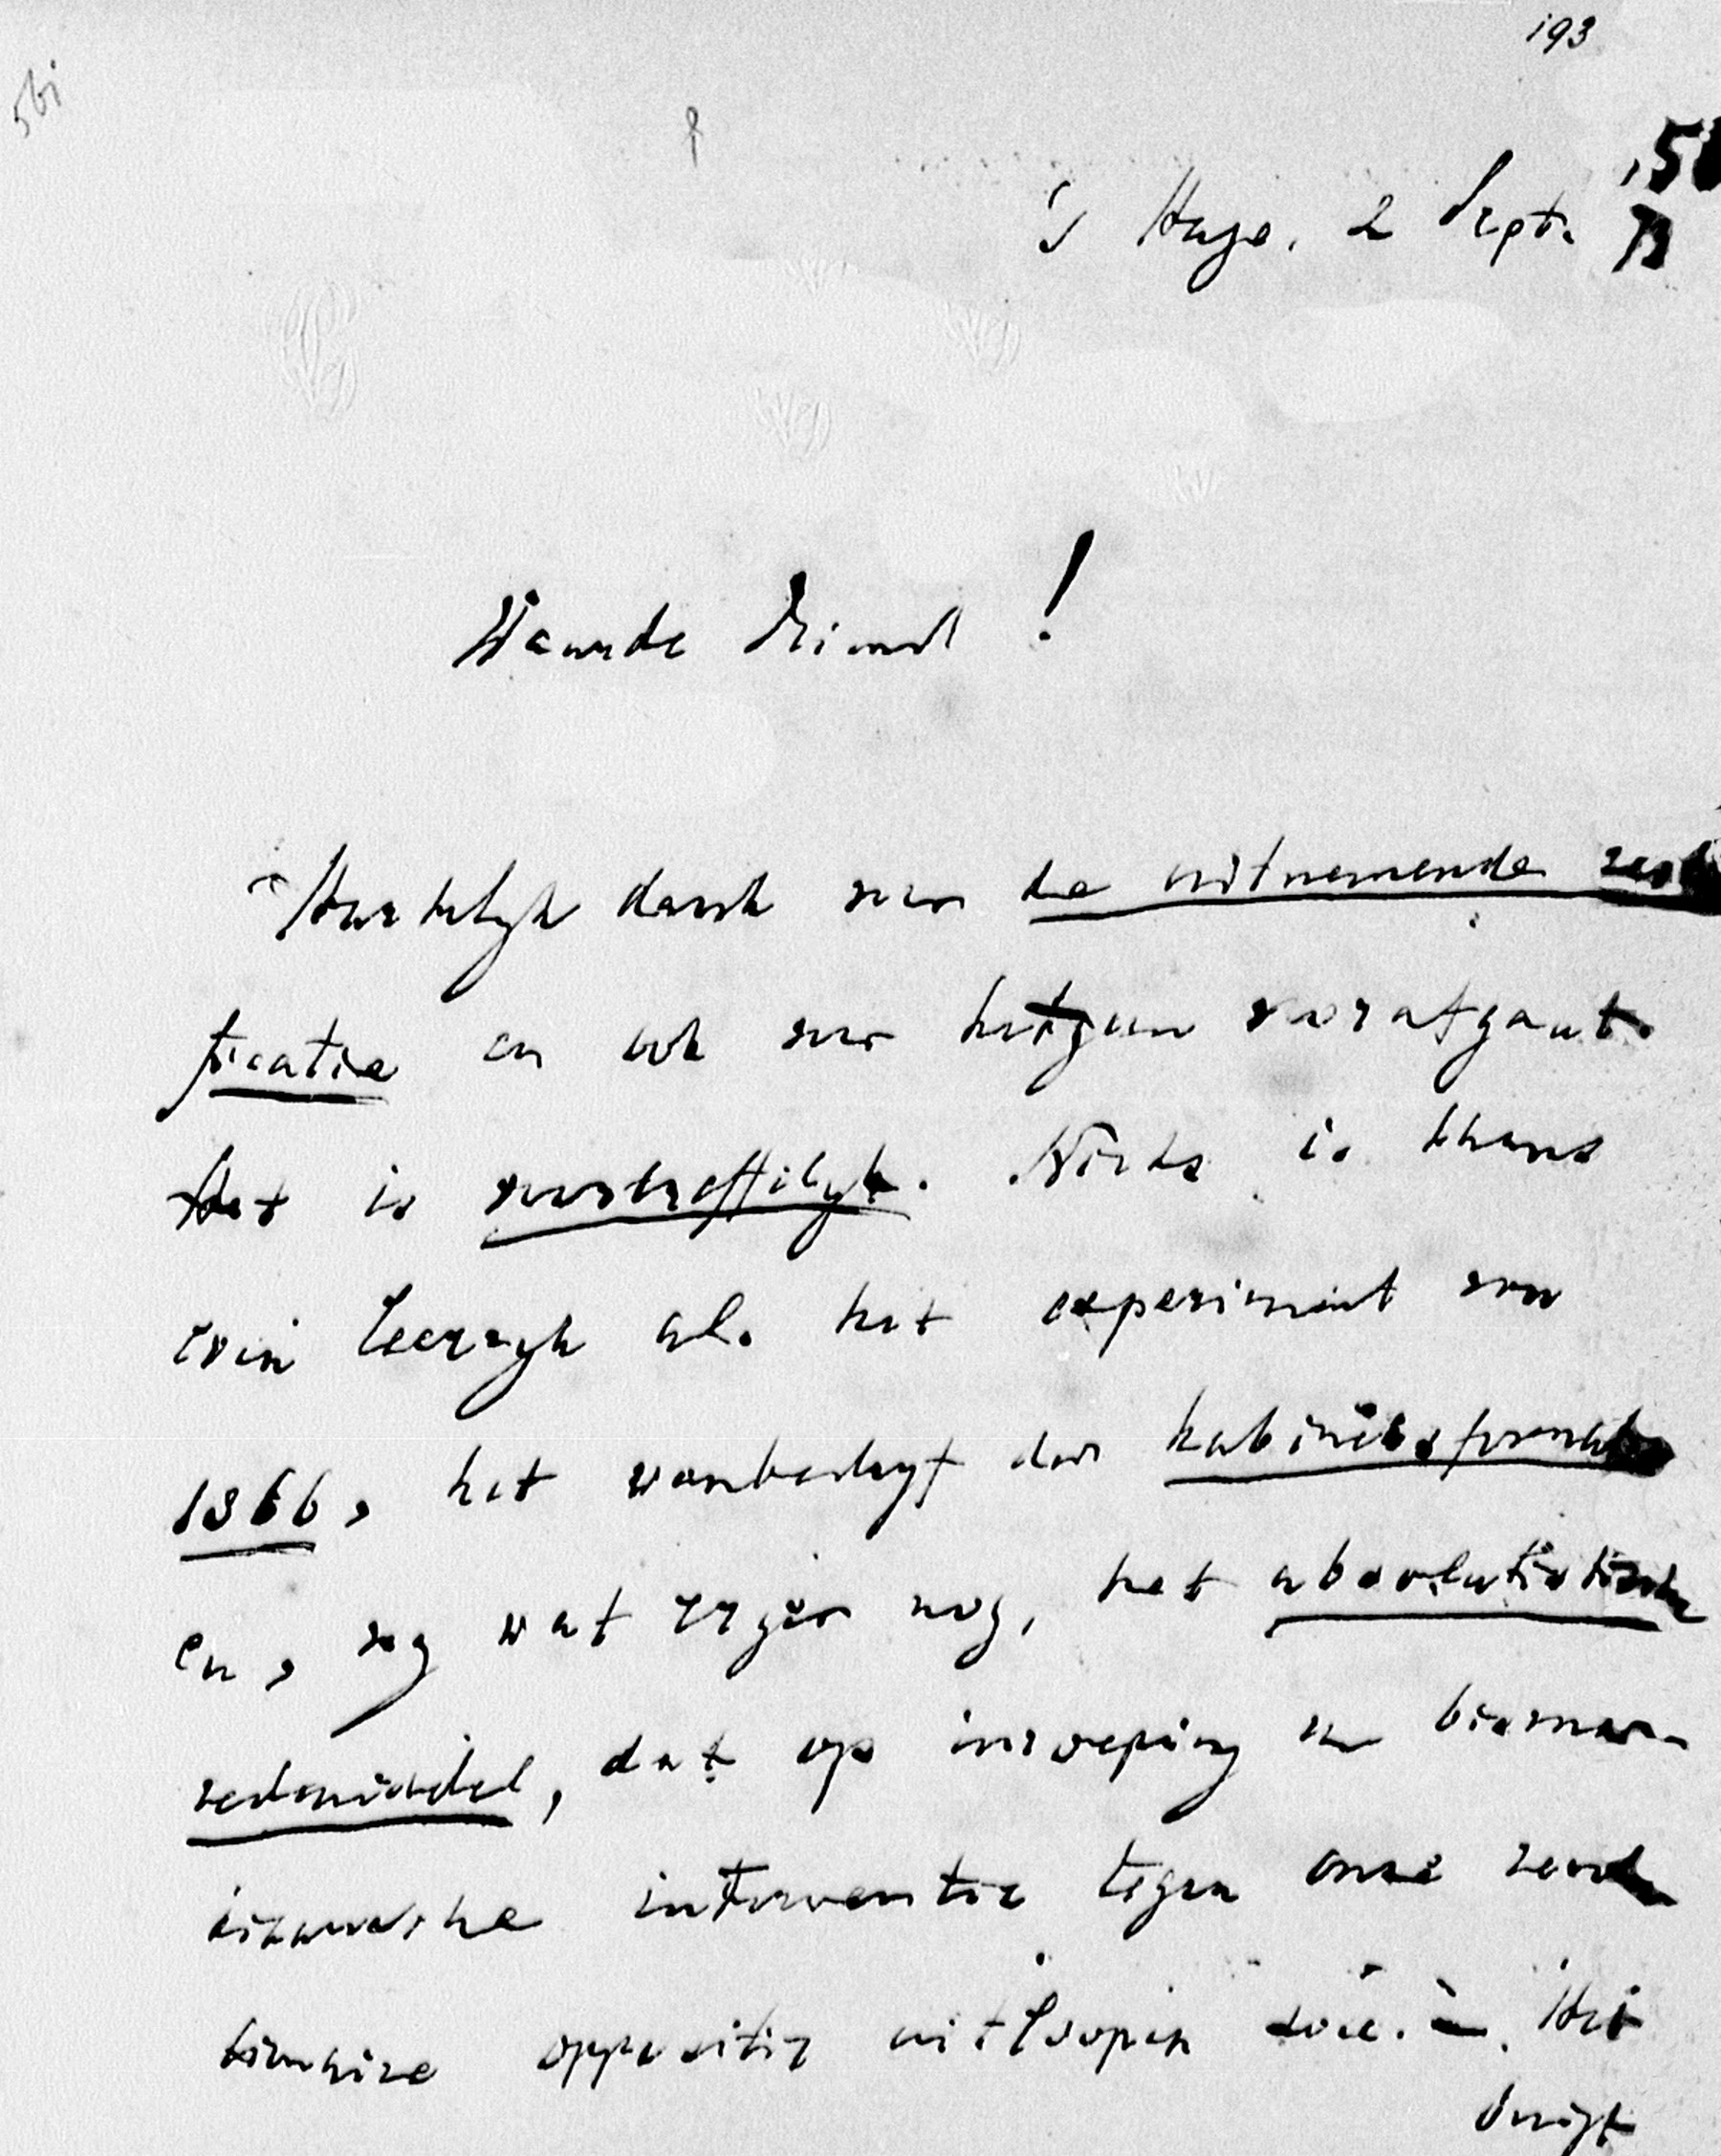 193
561
's Hage. 2 Sept. 73
Waarde Vriend!
Hartelijk dank voor de uitnemende recti
ficatie en ook voor hetgeen voorafgaat.
Het is voortreffelijk. Niets is thans
even leerrijk als het experiment van
1866, het wanbedrijf der kabinetsformatie
en, nog wat erger nog, het absolutistische
redmiddel, dat op inroeping en
interventie tegen onze
oppositie uitloopen zou. Het
dreigt